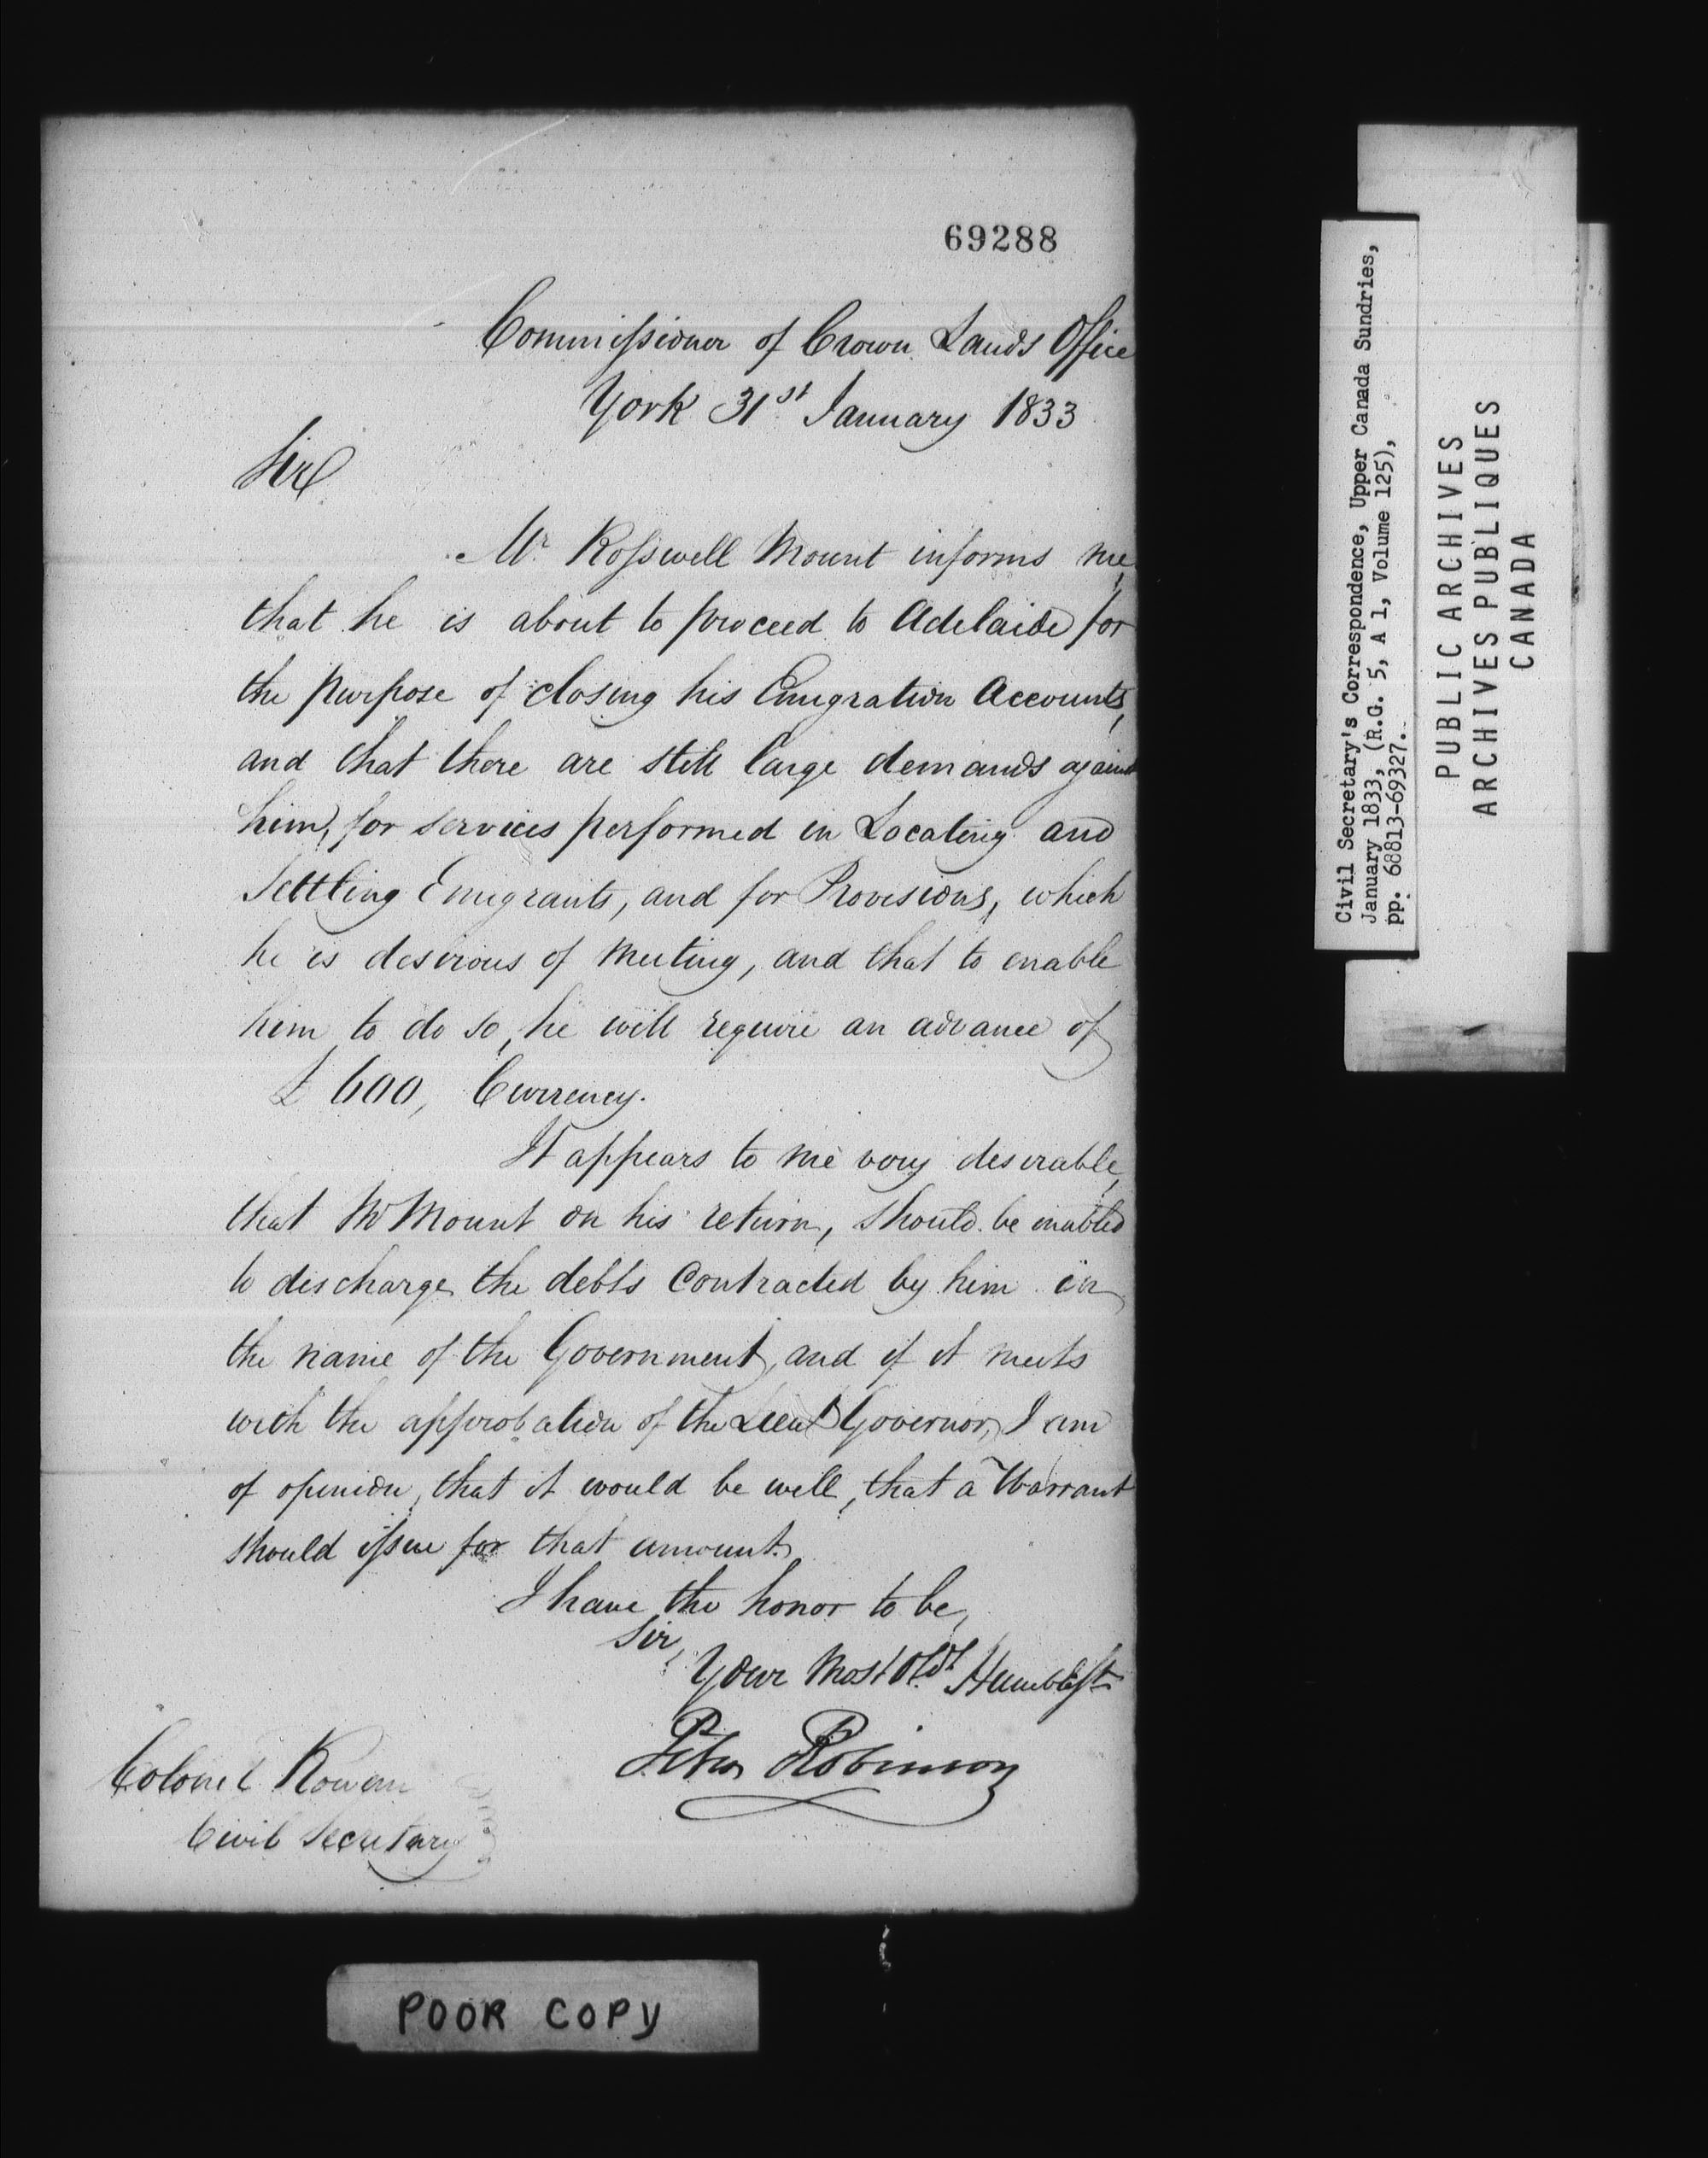 69288
Commissioner of Crown Lands Office
York 31st January 1833
Sir
Mr Rosswell Mount informs me,
that he is about to proceed to Adelaide for
the purpose of closing his Emigration Accounts,
and that there are still large demands against
him, for services performed in Locating and
Settling Emigrants, and for Provisions, which
he is desirous of meeting, and that to enable
him to do so, he will require an advance of
£ 600, Currency.
It appears to me very desirable,
that Mr Mount on his return, should be enabled
to discharge the debts Contracted by him in
the name of the Government, and if it meets
with the approbation of the Lieut Governor, I am
of opinion, that it would be well, that a Warrant
should issue for that amount.
I have the honor to be,
Sir,
Your Most Obdt Humble St
Peter Robinson
Colonel Rowan
Civil Secretary
POOR COPY
Civil Secretary's Correspondence, Upper Canada Sundries,
January 1833, (R.G. 5, A 1, Volume 125),
pp. 68813-69327.
PUBLIC ARCHIVES
ARCHIVES PUBLIQUES
CANADA